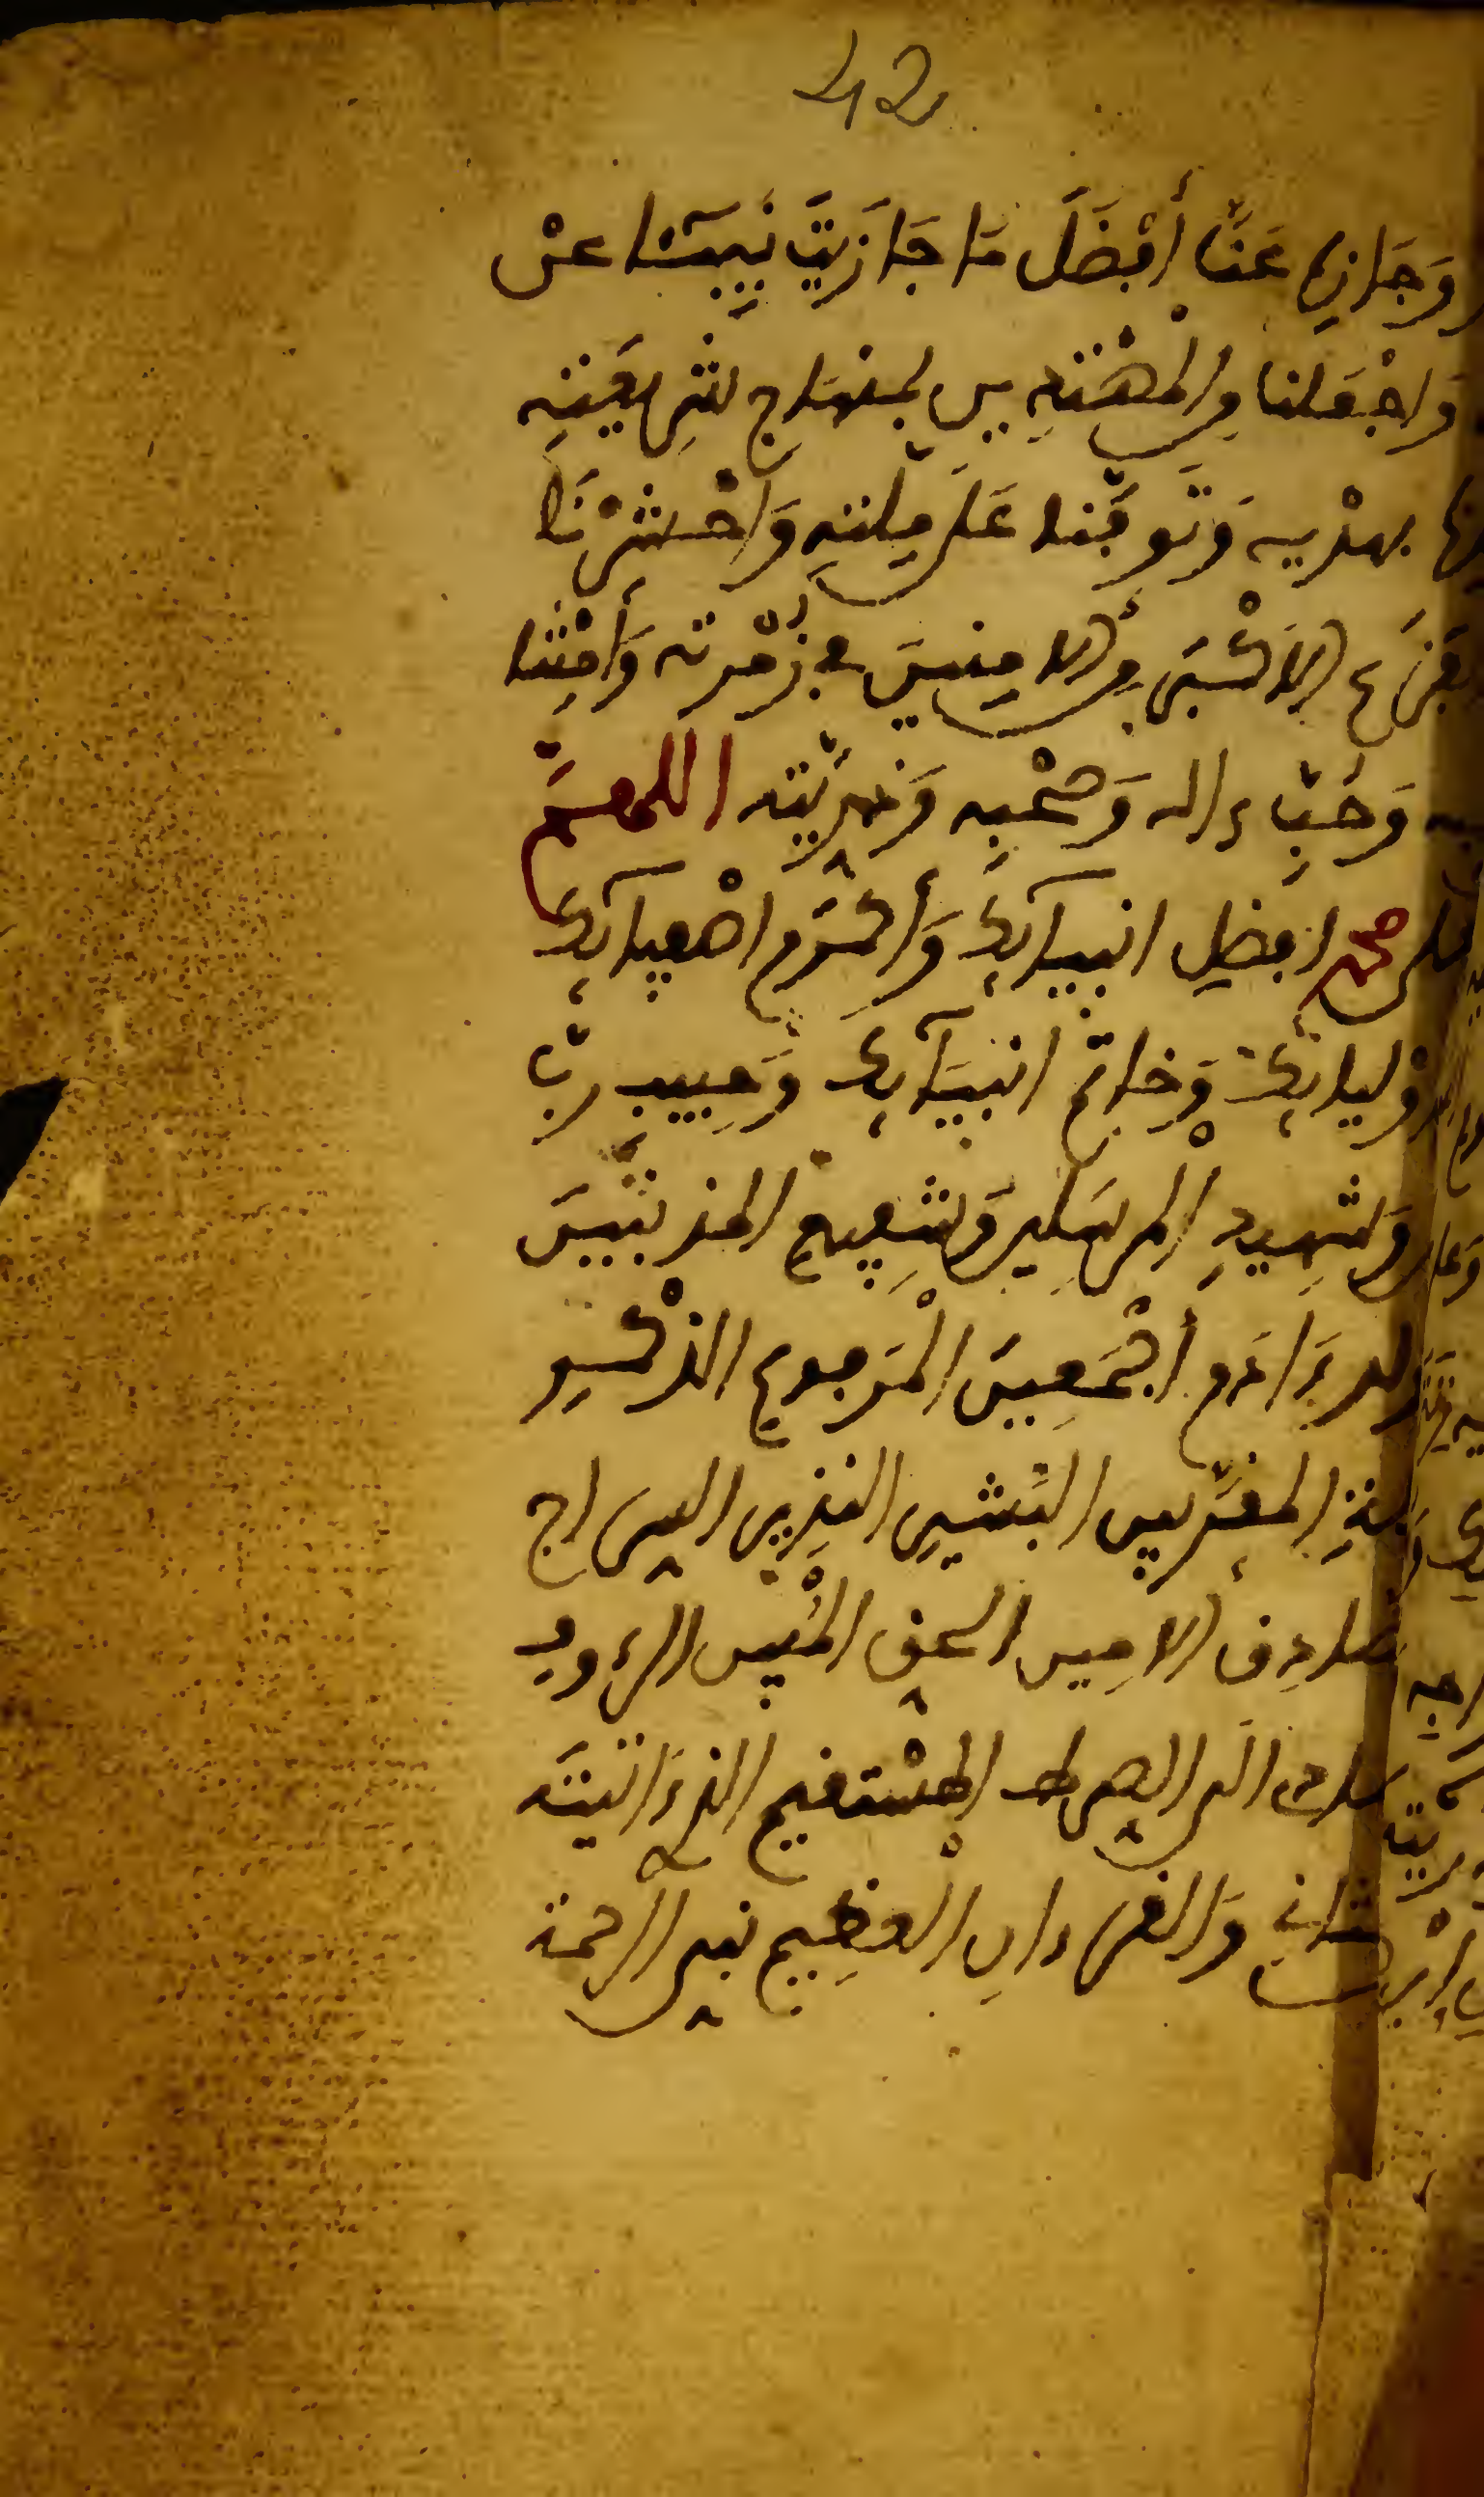 42
وَجَازِهِ عَنَّا أَفْضَلَ مَا جَازَيْتَ نَبِيئًا عنْ
وَاجْعَلنا مِنَ الْمُهْتَدِين بمنهاج شَرِيعَتِهِ
بهدْيه وَتَوَفَّنا عَلَى مِلتهِ وَاحْشُرْنَا
الفَزَع الاَكْبَرِ مِنَ الاَمنينَ في زُمْرته وَأَمِتْنا
وَحُبِّ ءاله وَصَحْبِهِ وَذُرِّيَّته اللهمَّ
على محمد افضلِ انبيآئِكَ وَأَكْرَمِ اصْفِيآئِكَ
أَوْليائِكَ وَخاتم انبيَآئِكَ وَحَبِيبِ ربِّ
وَشَهِيدِ الْمرسَلِين وَشَفِيعِ المذنبينَ
ولد ءَادَم أَجْمَعِينَ الْمَرفوعِ الذكْر
المقرَّبين البَشيرِ النذِير السراج
الصادِق الاَمِين الحق المُبين الرءوف
الى الصراط الْمستقيم الذى ءَاتَيْتَه
المثانى وَالقرءانِ الْعَظِيم نبى الرحمة